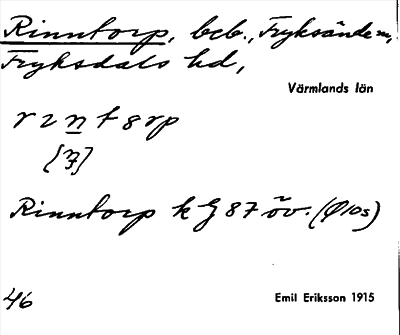 Rinntorp, beb., Fryksände sn,
Fryksdals hd,
Värmlands län
Rinntorp k G 87 öv. (Ø10s)
46
Emil Eriksson 1915